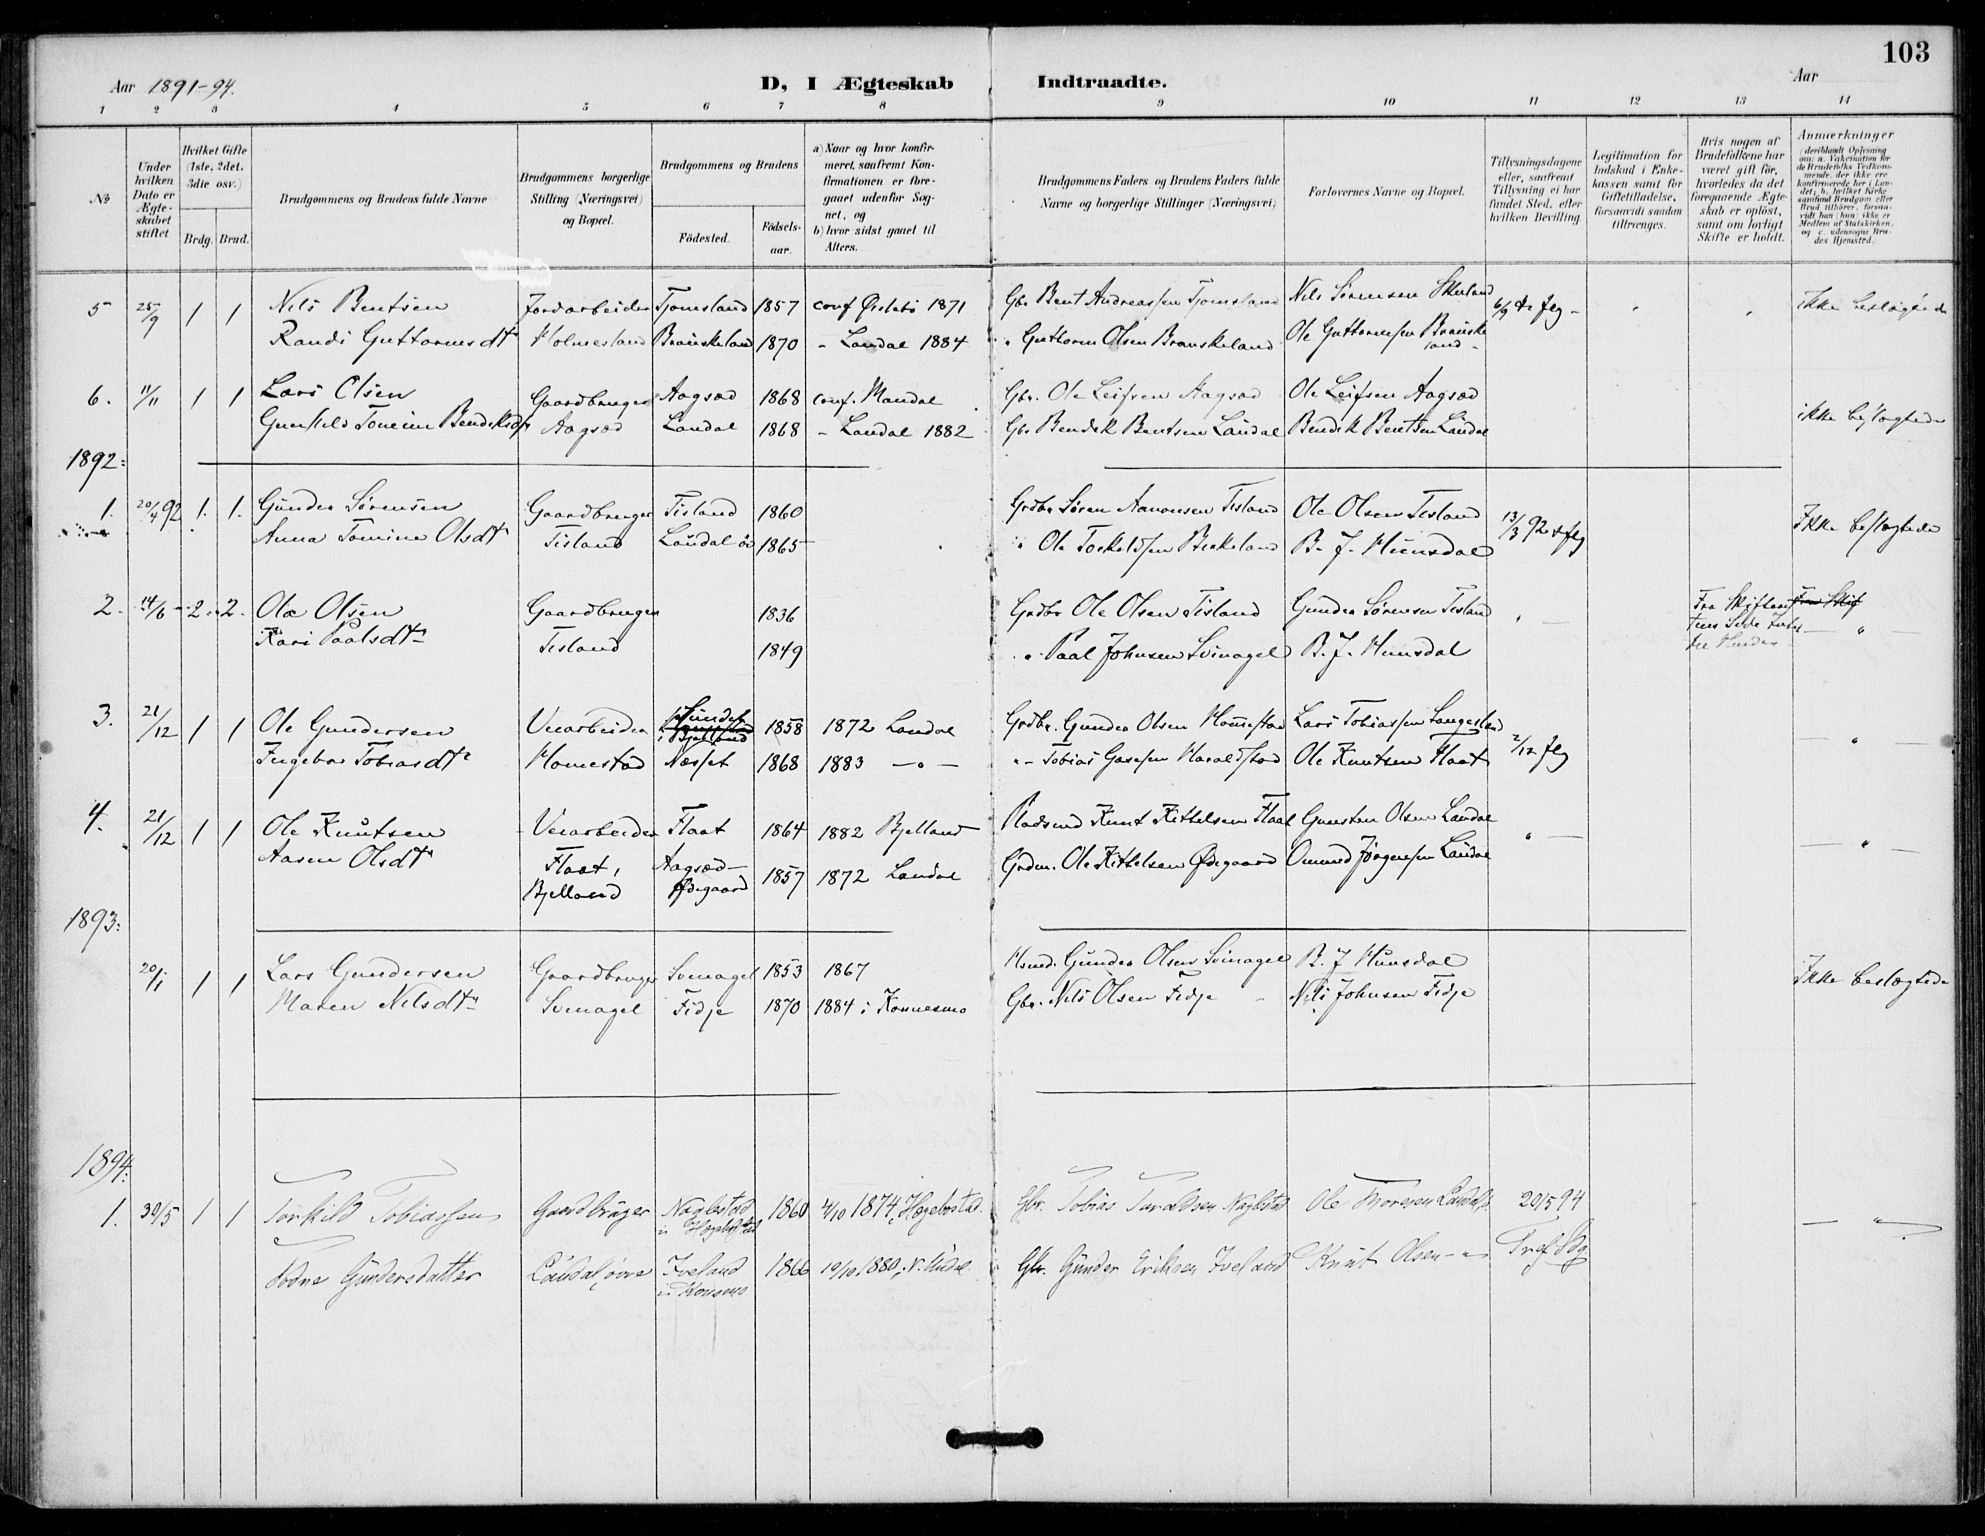 103
Aar 1891-94.
D, I Ægteskab Indtraadte.
Aar
1 2 3 4 5 6 7 8 9 10 11 12 13 14
No
Under hvilken Dato er Ægteskabet stiftet
Hvilket Gifte (1ste, 2det, 3die osv.)
Brdg. Brud.
Brudgommens og Brudens fulde Navne
Brudgommens borgerlige Stilling (Næringsvei) og Bopæl.
Brudgommens og Brudens
Födested.
Födselsaar.
a) Naar og hvor konfirmeret, saafremt Konfirmationen er foregaaet udenfor Sognet, og
b) hvor sidst gaaet til Alters.
Brudgommens Faders og Brudens Faders fulde Navne og borgerlige Stillinger (Næringsvei)
Forlovernes Navne og Bopæl.
Tillysningsdagene eller, saafremt Tillysning ei har fundet Sted, efter hvilken Bevilling.
Legitimation for Indskud i Enkekassen samt for Giftetilladelse, forsaavidt saadan tiltrænges.
Hvis nogen af Brudefolkene har været gift før, hvorledes da det foregaaende Ægteskab er opløst, samt om lovligt Skifte er holdt.
Anmærkninger
5 25/9 1 1 Nils Bentsen Jordarbeider Tjomsland 1857 conf Øislebø 1871 Gbr Bent Andreassen Tjomsland Nils Sørensen Skuland 6/9 ikke beslægtede
Randi Guttormsdtr Holmesland Braiskeland 1870 - Laudal 1884 " Guttorm Olsen Braiskeland Ole Guttormsen Braiskeland
6. 11/11 1 1 Lars Olsen Gaardbruger Aagsæd 1868 conf. Mandal Gbr. Ole Leifsen Aagsæd Ole Leifsen Aagsæd
Gunhild Tomine Bendiksdtr Aagsæd Laudal 1868 - Laudal 1882 Gbr Bendik Bentsen Laudal Bendik Bentsen Laudal ikke beslægtede
1892:
1. 20/4 92 1. 1. Gunder Sørensen Gaardbruger Tisland 1860 Grdbr Søren Aanonsen Tisland Ole Olsen Tisland 13/3 92 Ikke beslægtede
Anna Tomine Olsdtr Tisland Laudal ø 1865 " Ole Torkeldsen Birkeland B. J. Hunsdal
2. 14/6 2 2. Ole Olsen Gaardbruger 1836 Grdbr Ole Olsen Tisland Gunder Sørensen Tisland " Fra Skifteret Fra Skif
Kari Paalsdtr Tisland 1849 " Paal Johnsen Svinagel B. J. Hunsdal
3. 21/12 1 1 Ole Gundersen Veiarbeider Bjelland 1858 1872 Laudal Grdbr. Gunder Olsen Homestad Lars Tobiassen Langeland
Ingebor Tobiasdtr Homestad Næsset 1868 1883 - " - " Tobias Haraldstad Ole Knutsen Flaat 2/12
4. 21/12 1 1 Ole Knutsen Veiarbeider Flaat 1864 1882 Bjelland Pladsmd Knut Kittelsen Flaat Gunsten Olsen Laudal "
Aasen Olsdtr Flaat, Bjelland Aagsæd-Ødegaard 1857 1872 Laudal Grdm. Ole Kittelsen Ødegaard Omund Jørgensen Laudal
1893:
20/1 1 1 Lars Gundersen Gaardbruger Svinagel 1853 1867 Hsmd. Gunder Olsen Svinagel B. J Hunsdal Ikke beslægtede
Maren Nilsdtr Svinagel Fidje 1870 1884 i Konnesmo Gbr. Nils Olsen Fidje Nils Johnsen Fidje
1894:
1. 30/5 1 1 Torkild Tobiassen Gaardbruger Naglestad i Hægebostad 1860 4/10 1874, Hægebostad. Gbr. Tobias Taraldsen Naglestad Ole Laudal 20/5 94 "
Todne Gundersdatter Laudal, øvre Iveland i Konsmo 1866 10/10 1880, N. Undal Gbr. Gunder Eriksen Iveland Knut Olsen - "